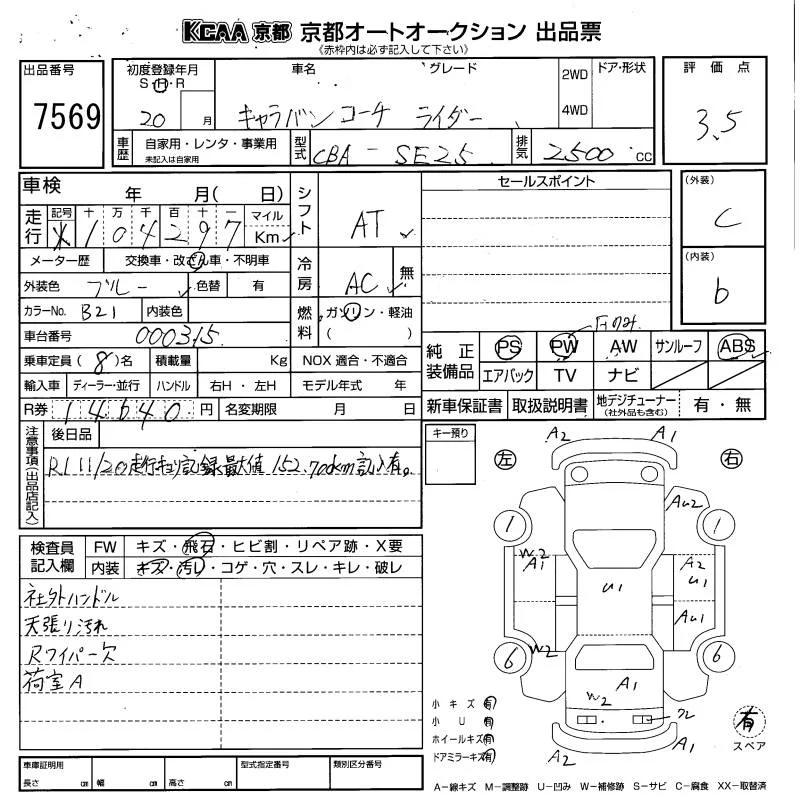 KCAA 京都 京都オートオークション 出品票
《赤枠内は必ず記入して下さい》
出品番号
7569
初度登録年月
S・H・R
20 月
車名 グレード
キャラバンコーチ ライダー
2WD
4WD
ドア・形状
評価点
3.5
車歴
自家用・レンタ・事業用
未記入は自家用
型式
CBA-SE25
排気
2500 cc
車検 年 月( 日)
走行
記号 十 万 千 百 十 一 マイル
1 0 4 2 9 7 Km
メーター歴 交換車・改ざん車・不明車
外装色 ブルー 色替 有
カラーNo. B21 内装色
車台番号 000315
乗車定員 (8)名 積載量 Kg NOX 適合・不適合
輸入車 ディーラー・並行 ハンドル 右H・左H モデル年式 年
R券 14640 円 名変期限 月 日
シフト AT
冷房 AC 無
燃料 ガソリン・軽油
( )
セールスポイント
(外装)
C
(内装)
b
純正装備品
PS PW AW サンルーフ ABS
エアバック TV ナビ
新車保証書 取扱説明書 地デジチューナー (社外品も含む) 有・無
注意事項(出品店記入)
後日品
R1 11/20 走行キョリ記録最大値 152,700km 記入有。
キー預り
検査員記入欄
FW キズ・飛石・ヒビ割・リペア跡・X要
内装 キズ・汚レ・コゲ・穴・スレ・キレ・破レ
社外ハンドル
天張り汚れ
Rワイパー欠
荷室A
左 右
A2 A1
AU2
1 1
W2
A1
A2
U1
U1
AU1
6 W2 6
A1
W2
A2 A1
小キズ 有
小U 有
ホイールキズ 有
ドアミラーキズ 有
有
スペア
車庫証明用
長さ cm 幅 cm 高さ cm
型式指定番号 類別区分番号
A-線キズ M-調整跡 U-凹み W-補修跡 S-サビ C-腐食 XX-取替済